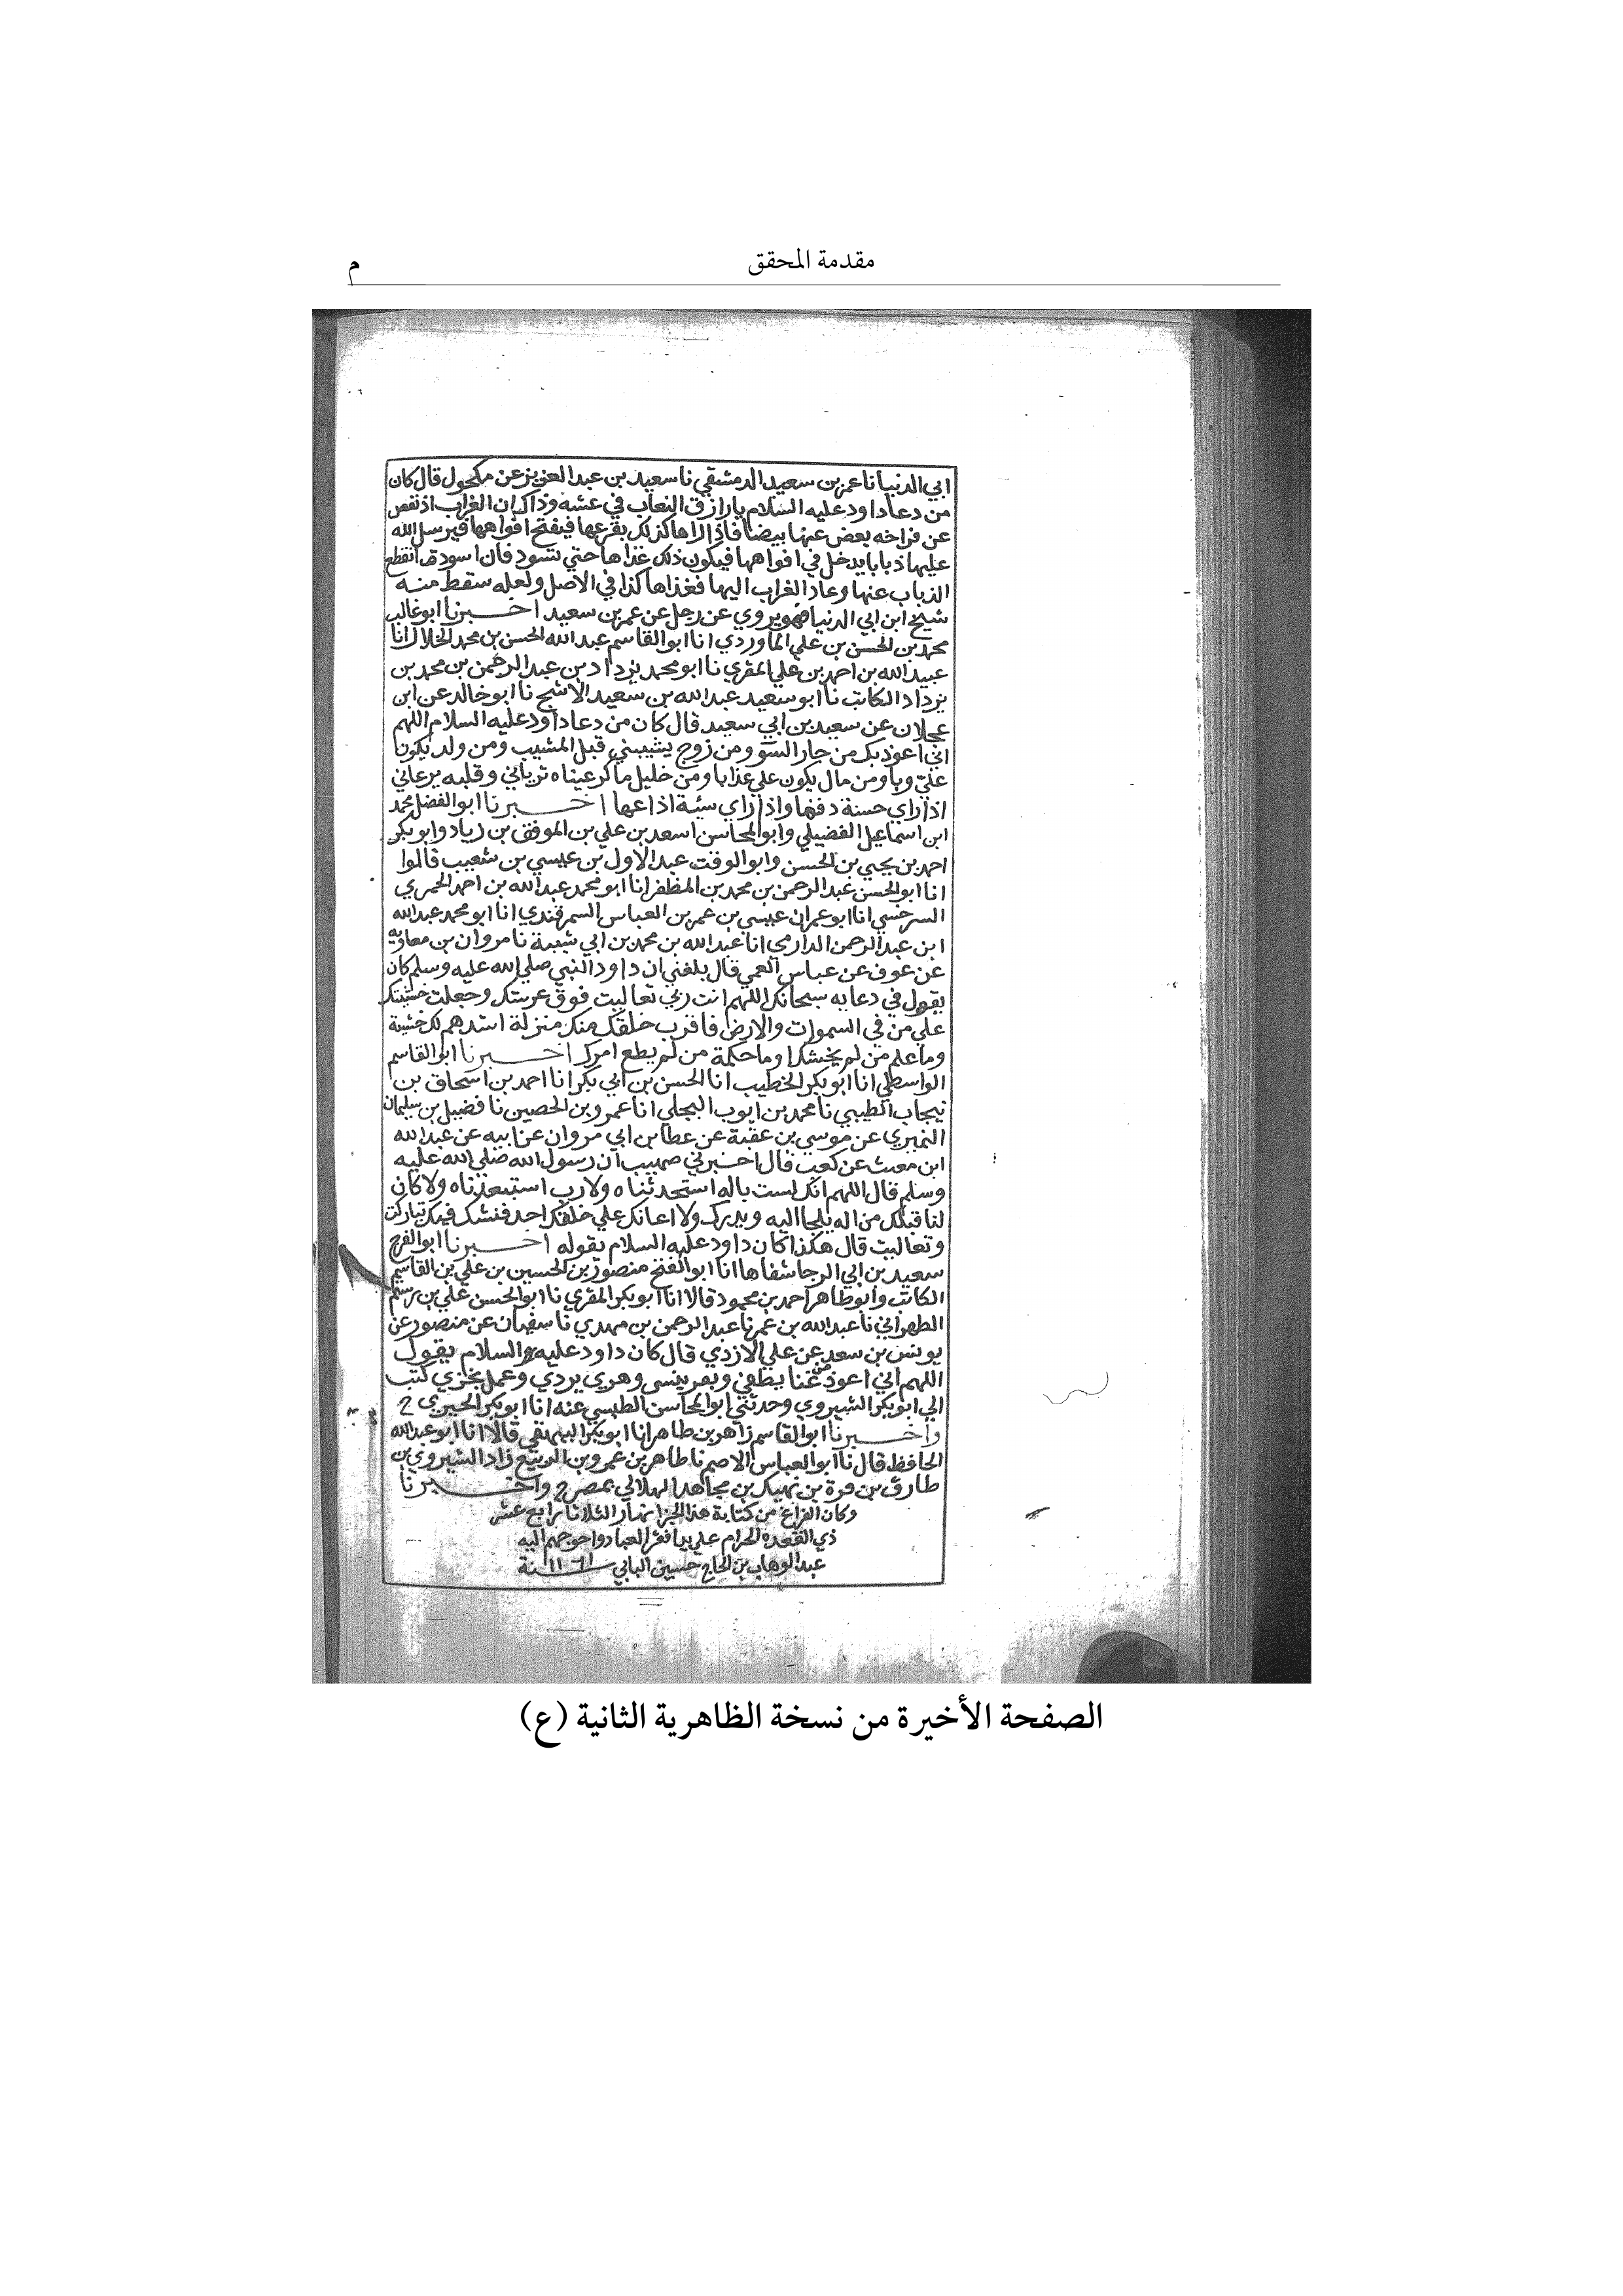 مقدمة المحقق
م
ابي الدنيا نا عمر بن سعيد الدمشقي نا سعيد بن عبد العزيز عن مكحول قال كان
من دعا داود عليه السلام يا رازق النعاب في عشه وذاك ان الغراب اذ نقص
عن فراخه بعض عنها بيضا فاذا راها كذلك نفر عنها فيفتح افواهها فيرسل الله
عليها ذبابا يدخل في افواهها فيكون ذلك غذاها حتي تسود فان اسودت انقطع
الذباب عنها وعاد الغراب اليها فغذاها كذا في الاصل ولعله سقط منه
شيخ ابن ابي الدنيا فهو يروي عن رجل عن عمر بن سعيد اخبرنا ابو غالب
محمد بن الحسن بن علي الماوردي انا ابو القاسم عبد الله الحسن بن محمد الخلال انا
عبيد الله بن احمد بن علي المقري نا ابو محمد يزداد بن عبد الرحمن بن محمد بن
يزداد الكاتب نا ابو سعيد عبد الله بن سعيد الاشج نا ابو خالد عن ابن
عجلان عن سعيد بن ابي سعيد قال كان من دعا داود عليه السلام اللهم
اني اعوذ بك من جار السو ومن زوج يشيبني قبل المشيب ومن ولد يكون
علي وبا ومن مال يكون علي عذابا ومن خليل ماكر عيناه ترياني وقلبه يرعاني
اذا راي حسنة دفنها واذا راي سيئة اذاعها اخبرنا ابو الفضل محمد
ابن اسماعيل الفضيلي وابو المحاسن اسعد بن علي بن الموفق بن زياد وابو بكر
احمد بن يحيي بن الحسن وابو الوقت عبد الاول بن عيسي بن شعيب قالوا
انا ابو الحسن عبد الرحمن بن محمد بن المظفر انا ابو محمد عبد الله بن احمد الحمري
السرخسي انا ابو عمران عيسي بن عمر بن العباس السمرقندي انا ابو محمد عبد الله
ابن عبد الرحمن الدارمي انا عبد الله بن محمد بن ابي شيبة نا مروان بن معاوية
عن عوف عن عباس العمي قال بلغني ان داود النبي صلي الله عليه وسلم كان
يقول في دعايه سبحانك اللهم انت ربي تعاليت فوق عرشك وجعلت خشيتك
علي من في السموات والارض فاقرب خلقك منك منزلة اشدهم لك خشية
وما علم من لم يخشك وما حكمة من لم يطع امرك اخبرنا ابو القاسم
الواسطي انا ابو بكر الخطيب انا الحسن بن ابي بكر انا احمد بن اسحاق بن
نيجاب الطيبي نا محمد بن ايوب البجلي انا عمرو بن الحصين نا فضيل بن سليمان
النميري عن موسي بن عقبة عن عطا بن ابي مروان عن ابيه عن عبد الله
ابن مغيث عن كعب قال اخبرني صهيب ان رسول الله صلي الله عليه
وسلم قال اللهم انك لست باله استحدثناه ولا رب استبعدناه ولا كان
لنا قبلك من اله يلجا اليه ويدرك ولا اعانك علي خلقك احد فنشك فيك تباركت
وتعاليت قال هكذا كان داود عليه السلام يقوله اخبرنا ابو الفرج
سعيد بن ابي الرجا شفاها انا ابو الفتح منصور بن الحسين بن علي بن القاسم
الكاتب وابو طاهر احمد بن محمود قالا انا ابو بكر المقري نا ابو الحسن علي بن رستم
الطهراني نا عبد الله بن عمر نا عبد الرحمن بن مهدي نا سفيان عن منصور عن
يونس بن سعد عن علي الازدي قال كان داود عليه السلام يقول
اللهم اني اعوذ من غنا يطغي وفقر ينسي وهوي يردي وعمل يخزي كتب
الي ابو بكر الشيروي وحدثني ابو المحاسن الطبسي عنه انا ابو بكر الحيري ح
واخبرنا ابو القاسم زاهر بن طاهر انا ابو بكر البيهقي قالا انا ابو عبد الله
الحافظ قال نا ابو العباس الاصم نا طاهر بن عمرو بن الربيع زاد الشيروي بن
طارق بن قرة بن نهيك بن مجاهد الهلالي بمصر ح واخبرنا
وكان الفراغ من كتابة هذا الجزا نهار الثلاثا رابع عشر
ذي القعدة الحرام علي يد افقر العباد واحوجهم اليه
عبد الوهاب بن الحاج حسين البابي سنة
الصفحة الأخيرة من نسخة الظاهرية الثانية (ع)